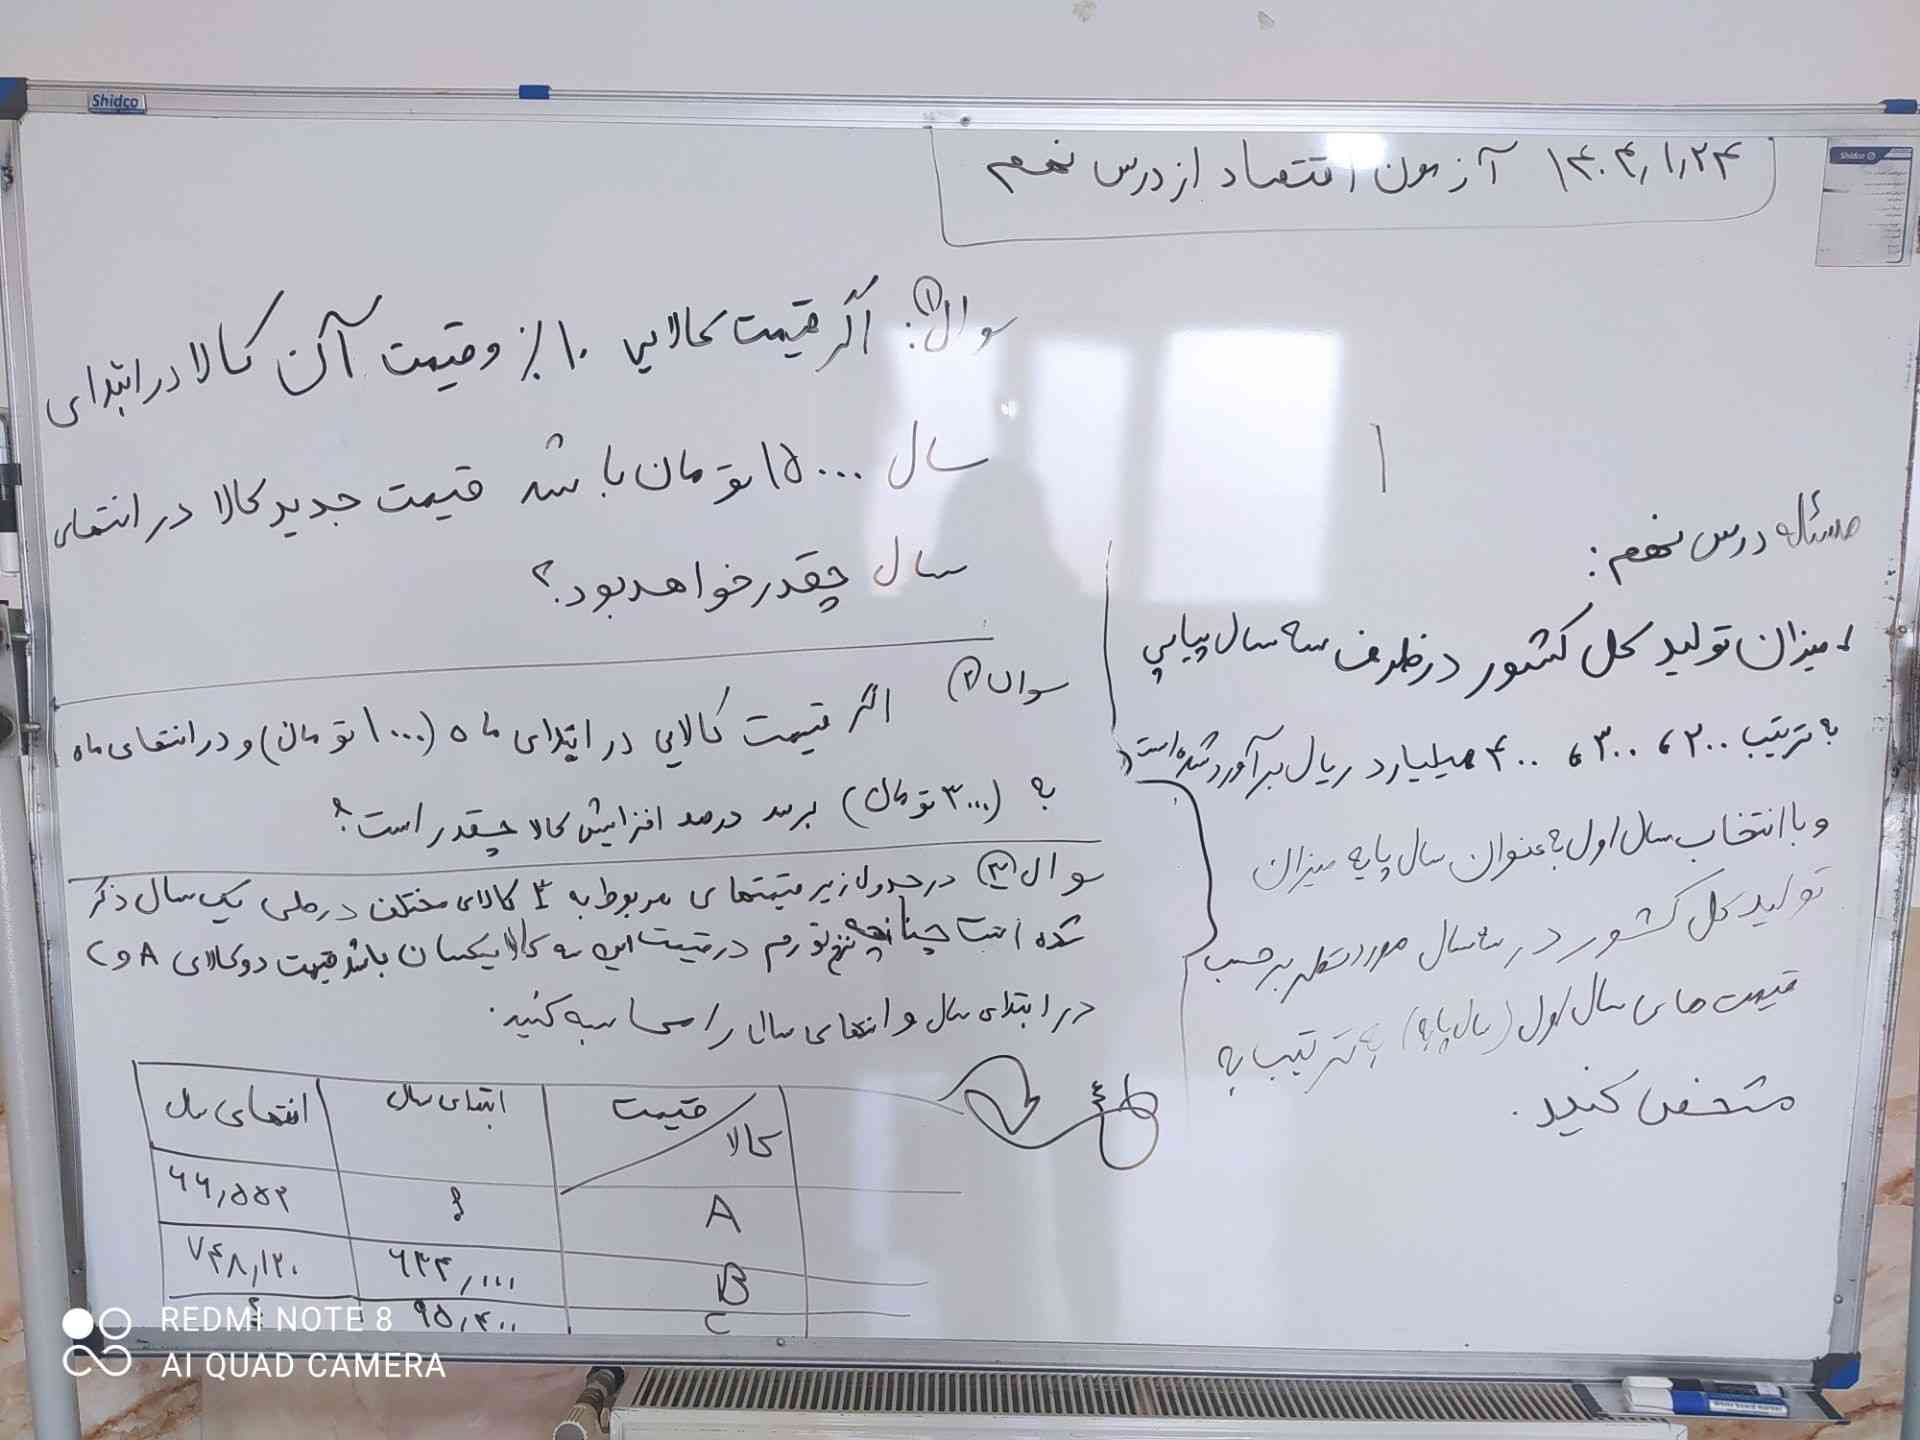 Shidco
۱۴۰۴/۱/۲۴ آزمون اقتصاد از درس نهم
سوال ①: اگر قیمت کالایی ۱۰٪ و قیمت آن کالا در ابتدای
سال ۱۵۰۰۰ تومان باشد قیمت جدید کالا در انتهای
سال چقدر خواهد بود؟
سوال ② اگر قیمت کالایی در ابتدای ماه (۱۰۰۰ تومان) و در انتهای ماه
به (۳۰۰۰ تومان) برسد درصد افزایش کالا چقدر است؟
سوال ③ در جدول زیر قیمتهای مربوط به ۳ کالای مختلف در طی یک سال ذکر
شده است چنانچه نرخ تورم در قیمت این سه کالا یکسان باشد قیمت دو کالای A و C
در ابتدای سال و انتهای سال را محاسبه کنید.
کالا قیمت ابتدای سال انتهای سال
A ؟ ۶۶,۵۵۲
B ۶۳۴,۰۰۰ ۷۴۸,۱۲۰
C ۹۵,۴۰۰ ؟
مسئله درس نهم:
۱- میزان تولید کل کشور در ظرف سه سال پیاپی
به ترتیب ۲۰۰، ۳۰۰، ۴۰۰ میلیارد ریال برآورد شده است
و با انتخاب سال اول به عنوان سال پایه میزان
تولید کل کشور در سه سال مورد نظر برحسب
قیمت های سال اول (سال پایه) به ترتیب به
مشخص کنید.
REDMI NOTE 8
AI QUAD CAMERA